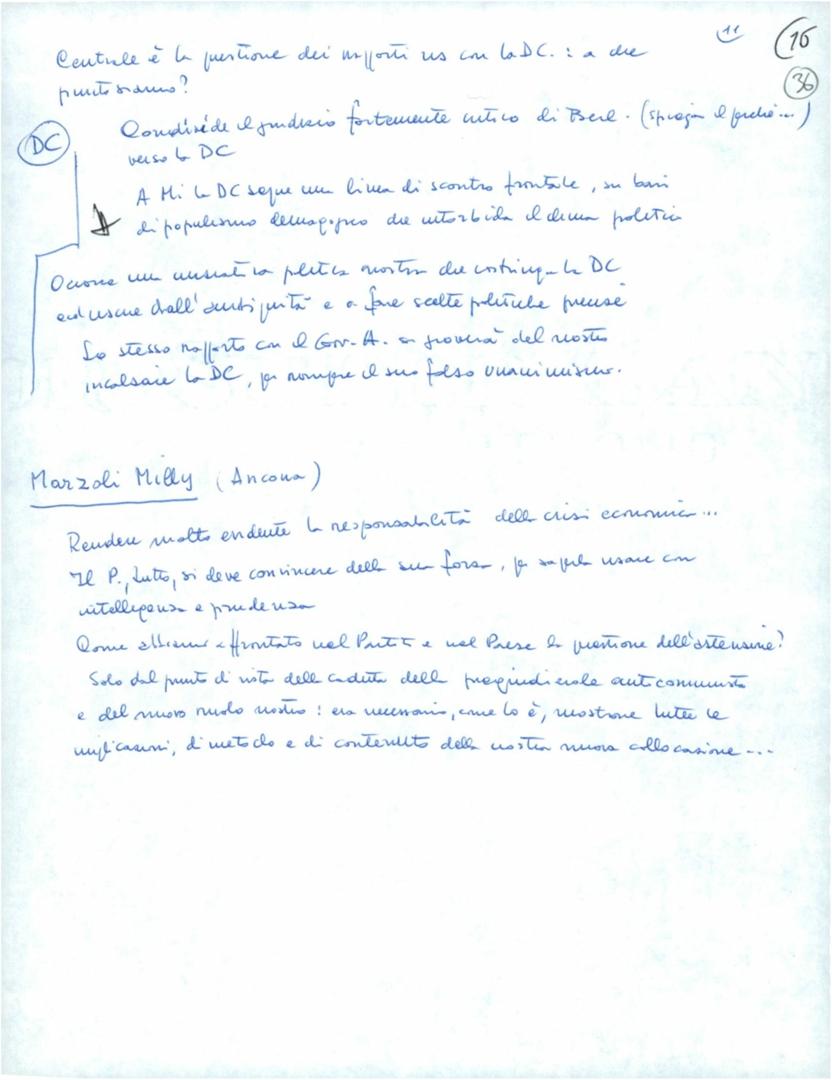 11
16
36
Centrale è la questione dei rapporti ns con la DC. : a che
punto siamo?
DC
Condivide il giudizio fortemente critico di Berl. (spiega il perché...)
verso la DC
A Mi la DC segue una linea di scontro frontale, su basi
di populismo demagogico che intorbida il clima politico
Occorre una iniziativa politica nostra che costringa la DC
ad uscire dall'ambiguità e a fare scelte politiche precise
Lo stesso rapporto con il Gov. A. si gioverà del nostro
incalzare la DC, per rompere il suo falso unanimismo.
Marzoli Milly (Ancona)
Rendere molto evidente la responsabilità della crisi economica...
Il P., tutto, si deve convincere della sua forza, per saperla usare con
intelligenza e prudenza
Come abbiamo affrontato nel Partito e nel Paese la questione dell'astensione?
Solo dal punto di vista della caduta della pregiudiziale anticomunista
e del nuovo ruolo nostro : era necessario, come lo è, mostrare tutte le
implicazioni, di metodo e di contenuto della nostra nuova collocazione...